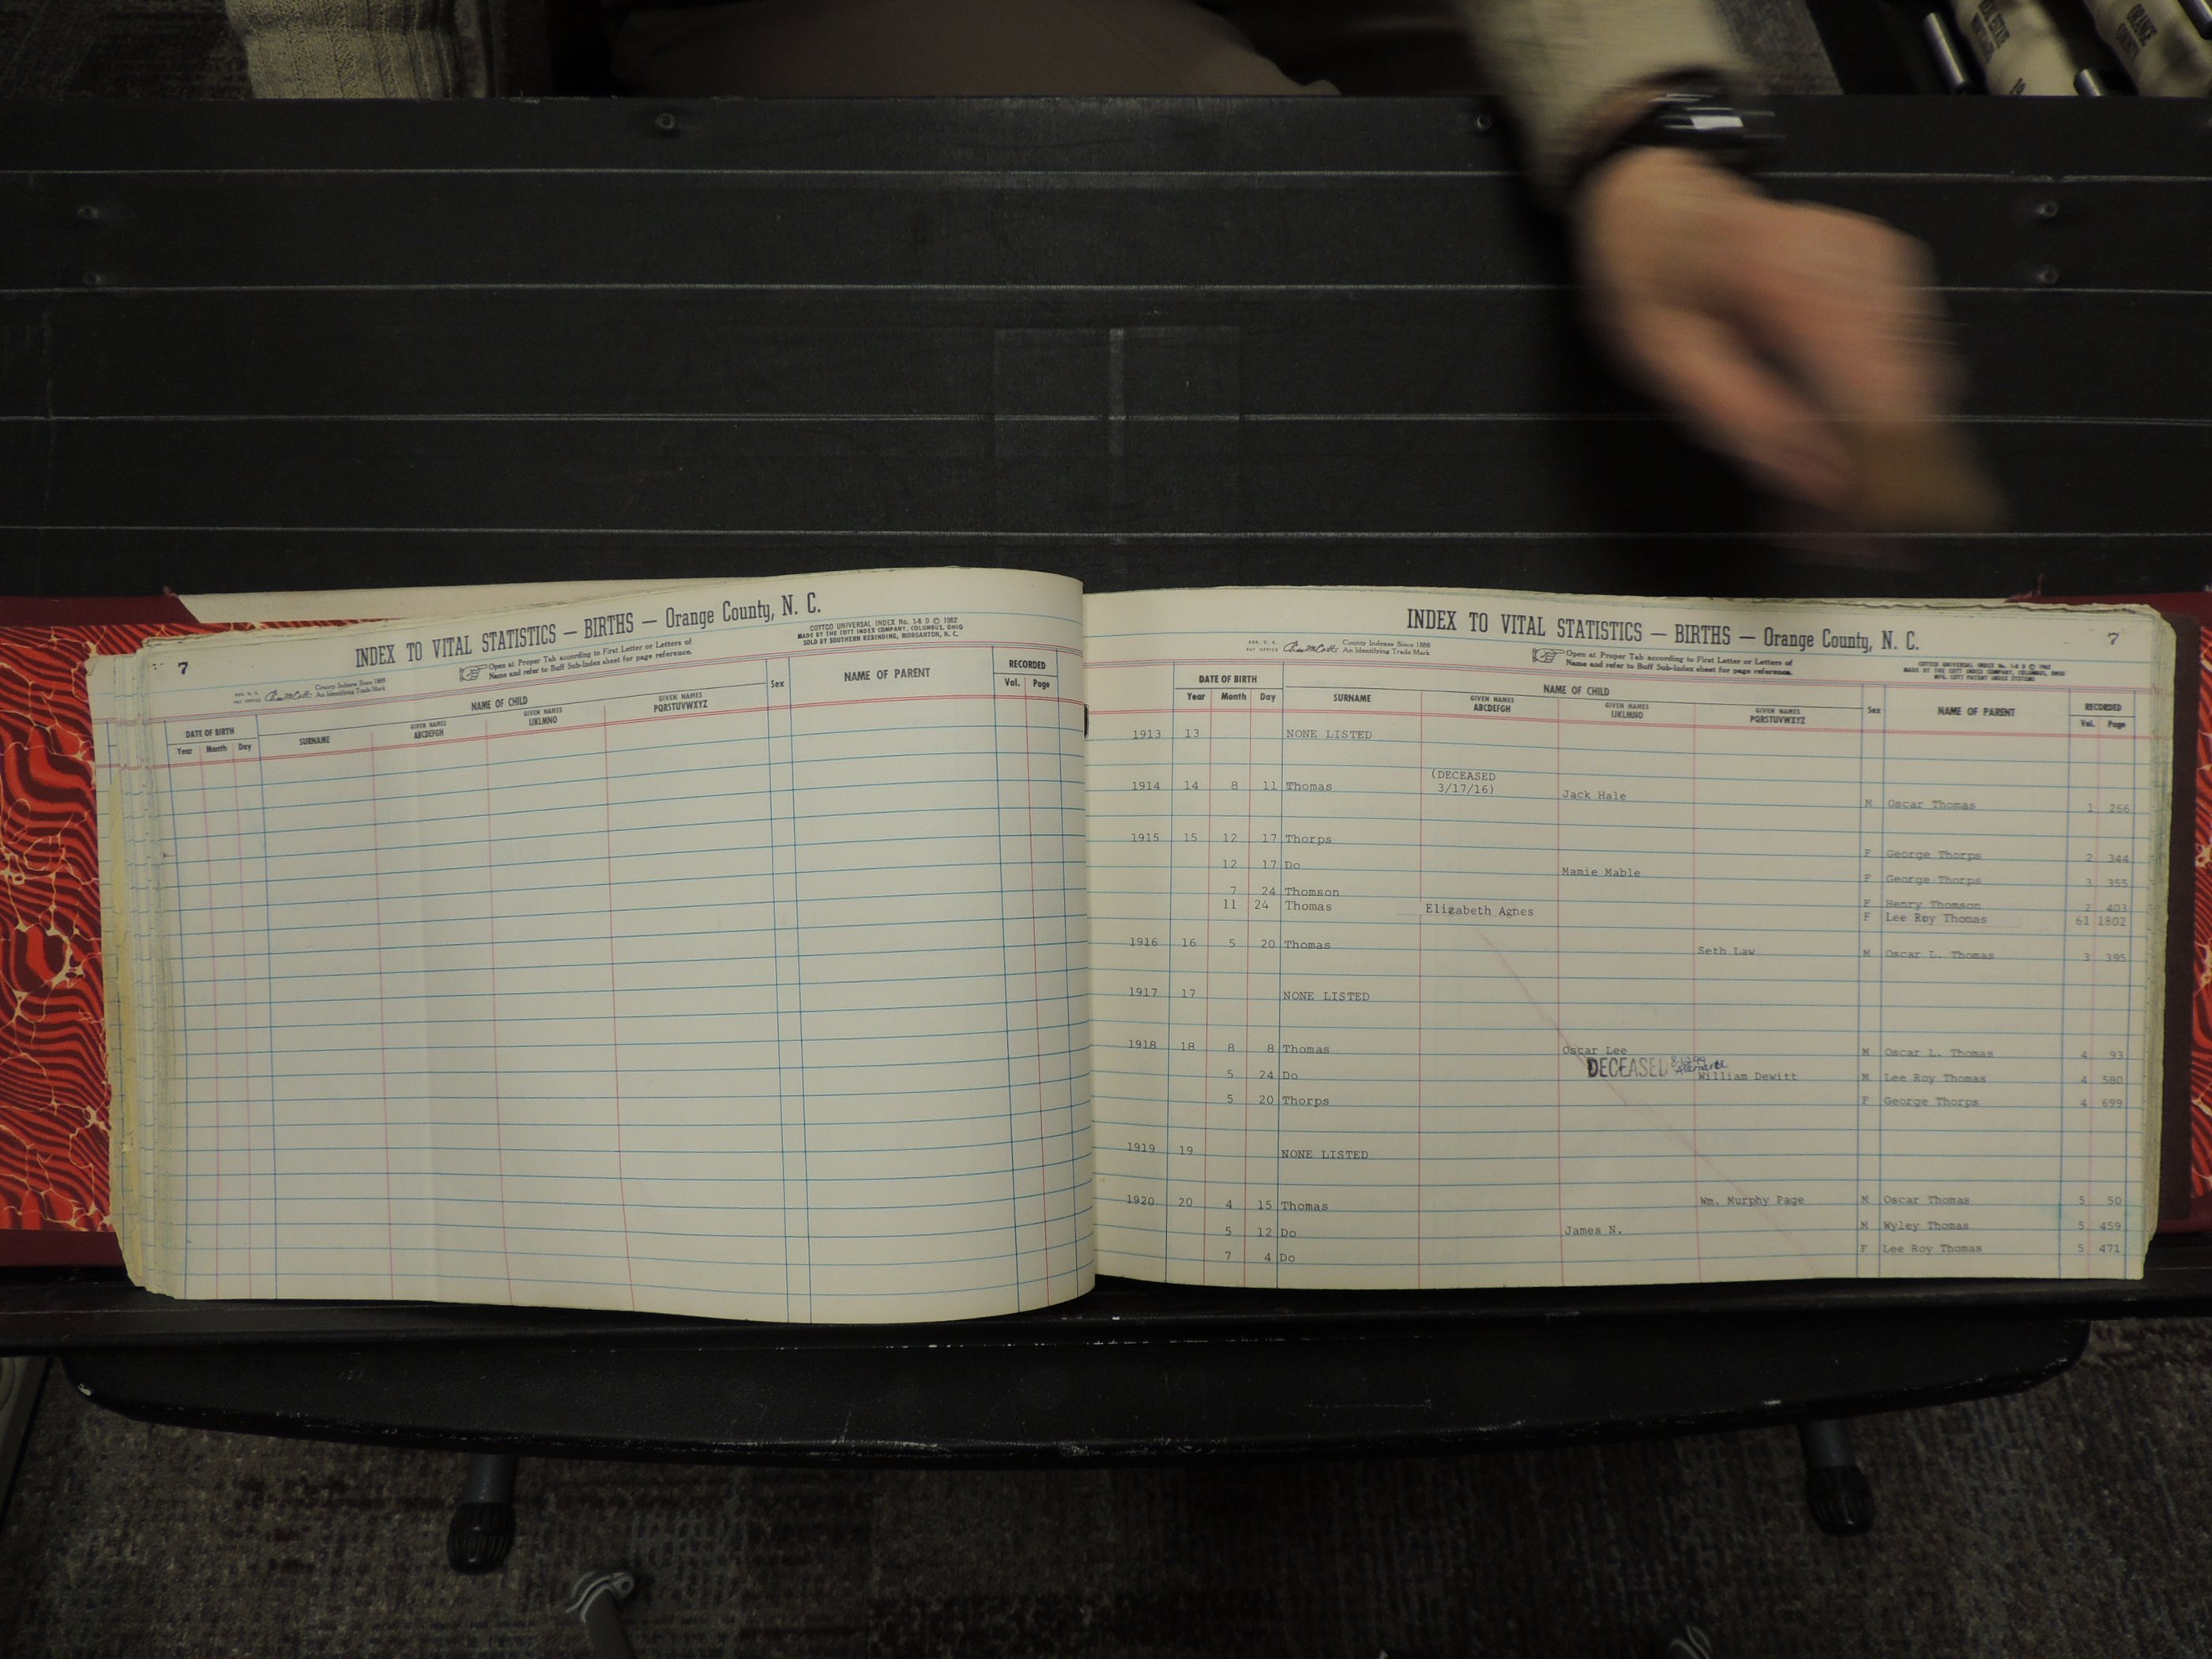 ORANGE
7
INDEX TO VITAL STATISTICS — BIRTHS — Orange County, N. C.
COTTCO UNIVERSAL INDEX No. 1-8 D © 1962
MADE BY THE COTT INDEX COMPANY, COLUMBUS, OHIO
SOLD BY SOUTHERN REBINDING, MORGANTON, N. C.
Open at Proper Tab according to First Letter or Letters of
Name and refer to Buff Sub-Index sheet for page reference.
REG. U. S. PAT OFFICE
County Indexes Since 1888
An Identifying Trade Mark
DATE OF BIRTH NAME OF CHILD Sex NAME OF PARENT RECORDED
Year Month Day SURNAME GIVEN NAMES ABCDEFGH GIVEN NAMES IJKLMNO GIVEN NAMES PQRSTUVWXYZ Vol. Page
INDEX TO VITAL STATISTICS — BIRTHS — Orange County, N. C. 7
REG. U. S. PAT OFFICE
County Indexes Since 1888
An Identifying Trade Mark
Open at Proper Tab according to First Letter or Letters of
Name and refer to Buff Sub-Index sheet for page reference.
COTTCO UNIVERSAL INDEX No. 1-8 D © 1962
MADE BY THE COTT INDEX COMPANY, COLUMBUS, OHIO
MFG. COTT PATENT INDEX SYSTEMS
DATE OF BIRTH NAME OF CHILD Sex NAME OF PARENT RECORDED
Year Month Day SURNAME GIVEN NAMES ABCDEFGH GIVEN NAMES IJKLMNO GIVEN NAMES PQRSTUVWXYZ Vol. Page
1913 13 NONE LISTED
(DECEASED
3/17/16)
1914 14 8 11 Thomas Jack Hale M Oscar Thomas 1 266
1915 15 12 17 Thorps F George Thorps 2 344
12 17 Do Mamie Mable F George Thorps 3 355
7 24 Thomson F Henry Thomson 2 403
11 24 Thomas Elizabeth Agnes F Lee Roy Thomas 61 1802
1916 16 5 20 Thomas Seth Law M Oscar L. Thomas 3 395
1917 17 NONE LISTED
1918 18 8 8 Thomas Oscar Lee M Oscar L. Thomas 4 93
DECEASED
5 24 Do William Dewitt M Lee Roy Thomas 4 580
5 20 Thorps F George Thorps 4 699
1919 19 NONE LISTED
1920 20 4 15 Thomas Wm. Murphy Page M Oscar Thomas 5 50
5 12 Do James N. M Wyley Thomas 5 459
7 4 Do F Lee Roy Thomas 5 471